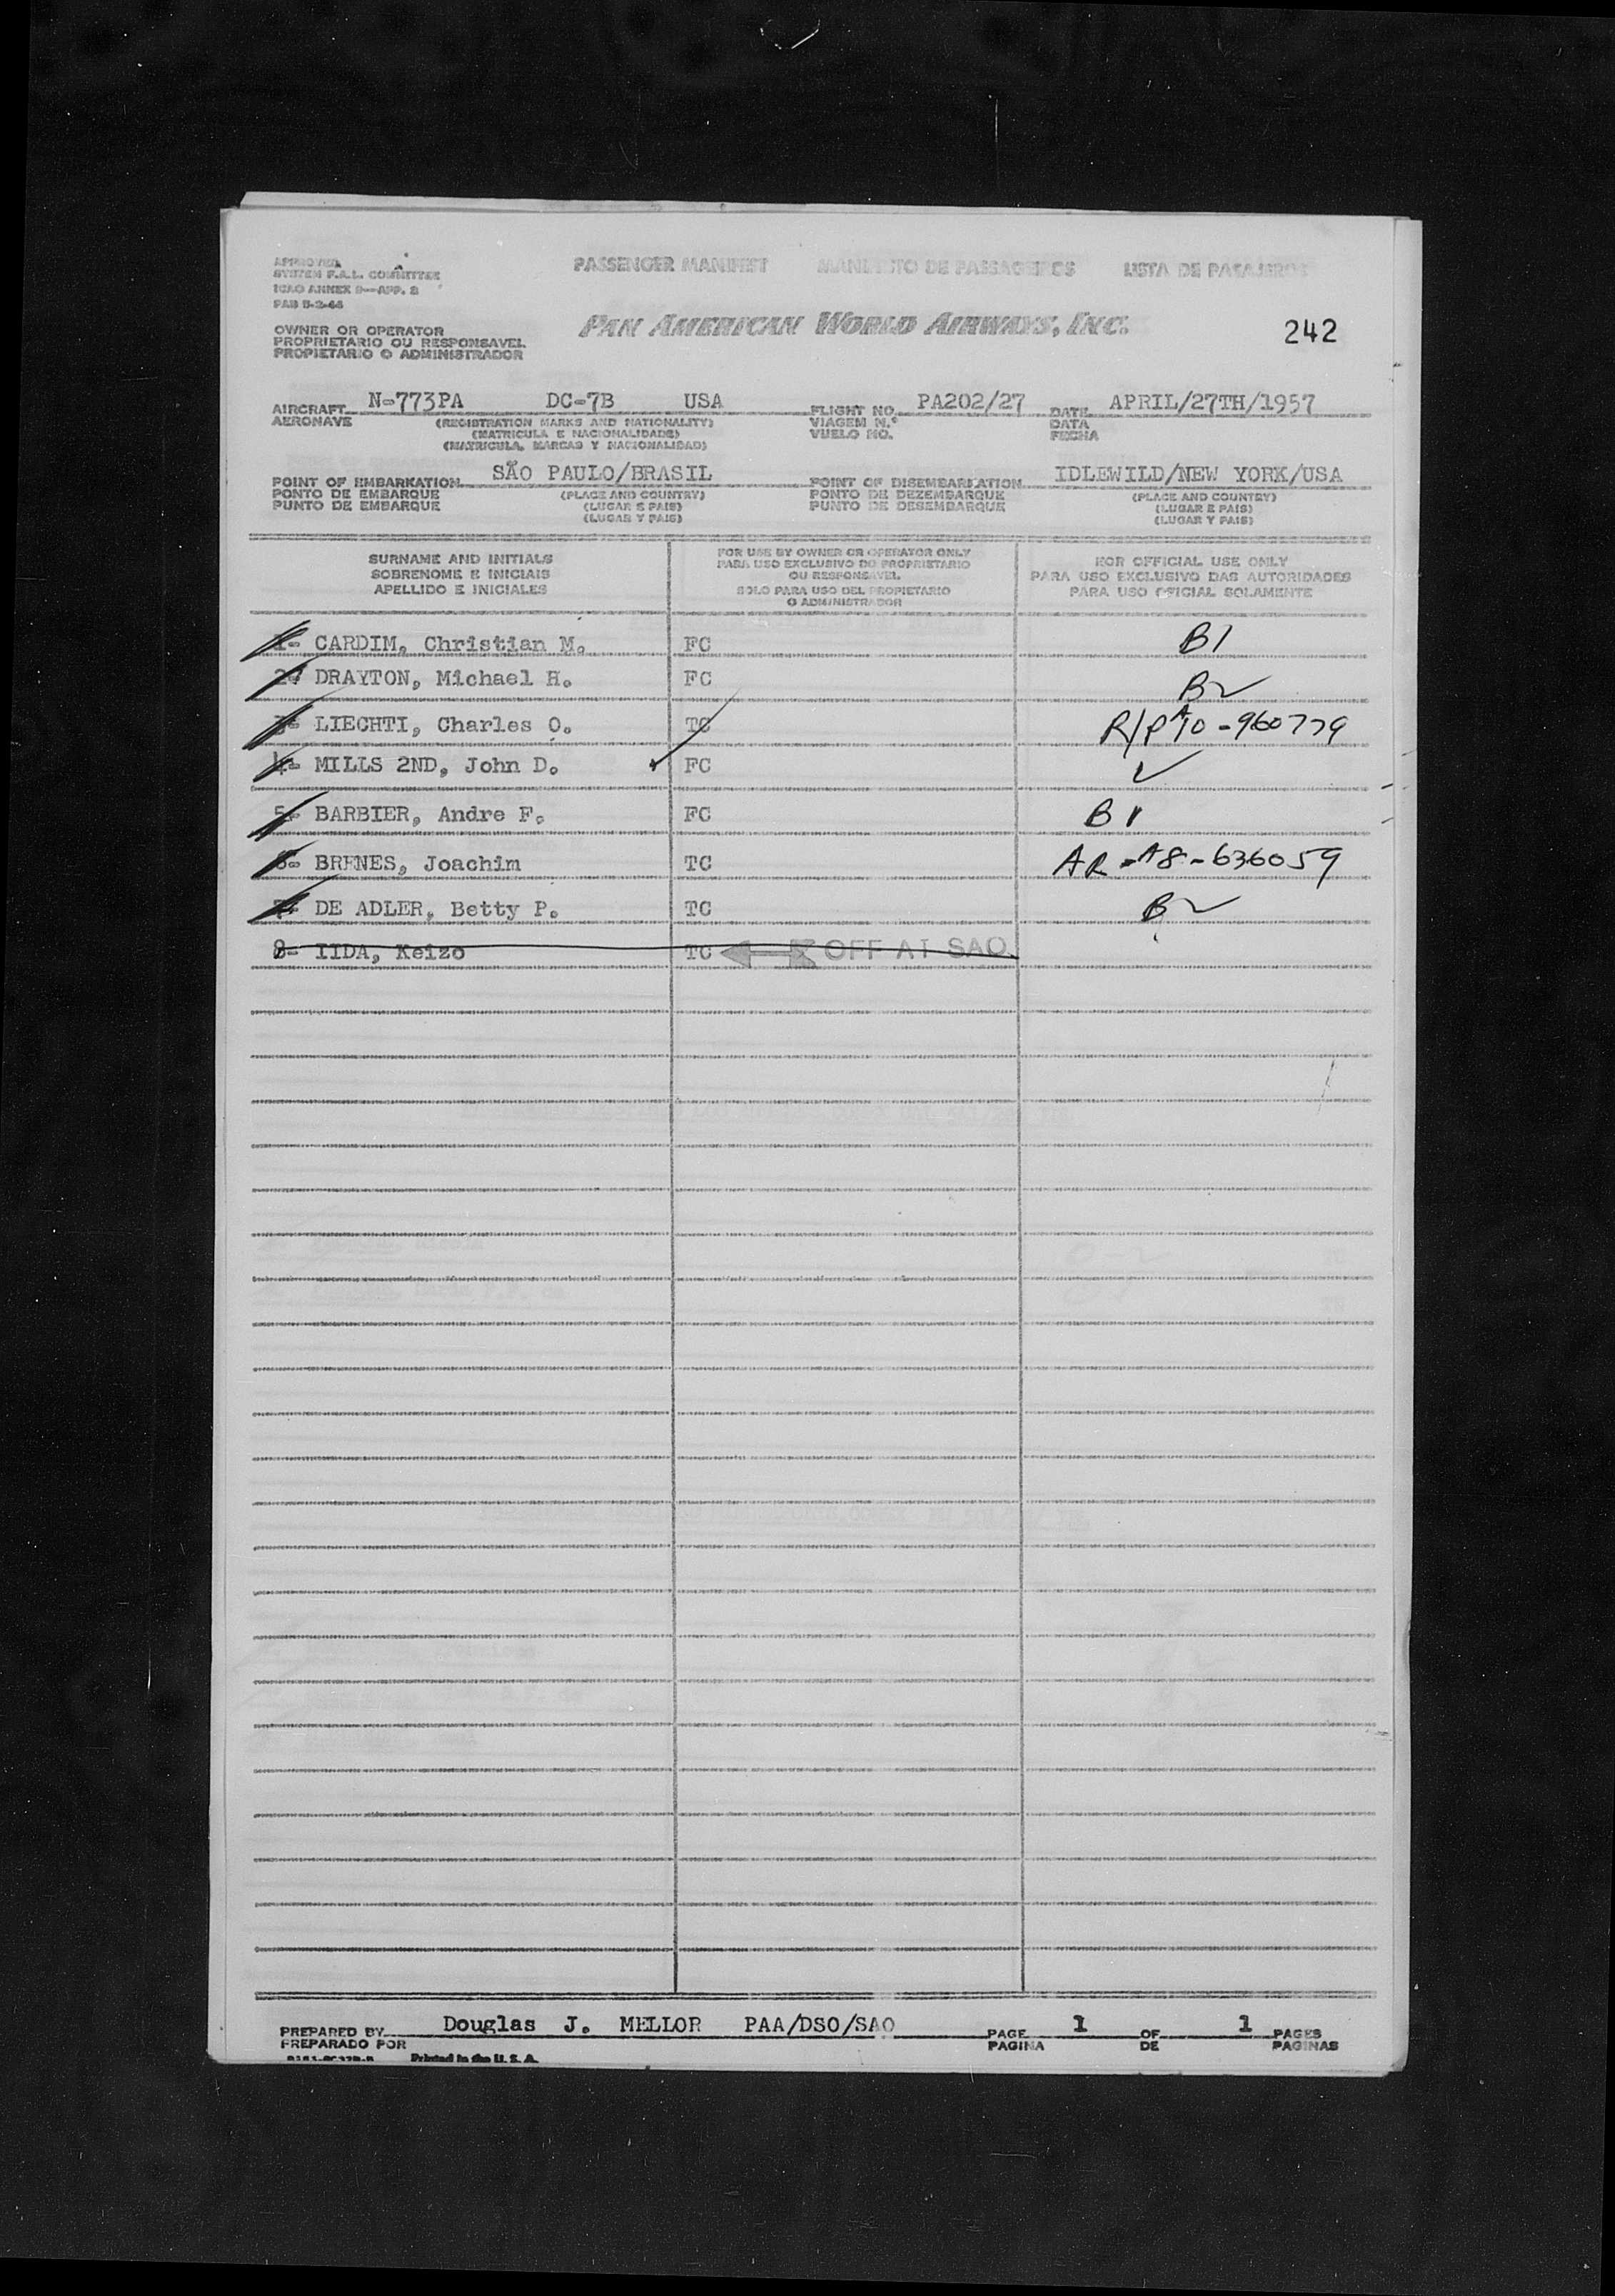 APPROVED
SYSTEM F.A.L. COMMITTEE
ICAO ANNEX 9—APP. 2
PASSENGER MANIFEST MANIFESTO DE PASSAGEIROS LISTA DE PASAJEROS
PAN AMERICAN WORLD AIRWAYS, INC.
242
OWNER OR OPERATOR
PROPRIETARIO OU RESPONSAVEL
PROPIETARIO O ADMINISTRADOR
AIRCRAFT N-773PA DC-7B USA FLIGHT NO. PA202/27 DATE APRIL/27TH/1957
AERONAVE (REGISTRATION MARKS AND NATIONALITY) VIAGEM N.º DATA
(MATRICULA E NACIONALIDADE) VUELO NO. FECHA
(MATRICULA, MARCAS Y NACIONALIDAD)
POINT OF EMBARKATION SÃO PAULO/BRASIL POINT OF DISEMBARKATION IDLEWILD/NEW YORK/USA
PONTO DE EMBARQUE (PLACE AND COUNTRY) PONTO DE DEZEMBARQUE (PLACE AND COUNTRY)
PUNTO DE EMBARQUE (LUGAR E PAIS) PUNTO DE DESEMBARQUE (LUGAR E PAIS)
(LUGAR Y PAIS) (LUGAR Y PAIS)
SURNAME AND INITIALS
SOBRENOME E INICIAIS
APELLIDO E INICIALES
FOR USE BY OWNER OR OPERATOR ONLY
PARA USO EXCLUSIVO DO PROPRIETARIO
OU RESPONSAVEL
SOLO PARA USO DEL PROPIETARIO
O ADMINISTRADOR
FOR OFFICIAL USE ONLY
PARA USO EXCLUSIVO DAS AUTORIDADES
PARA USO OFICIAL SOLAMENTE
1- CARDIM, Christian M. FC B1
2- DRAYTON, Michael H. FC B2
3- LIECHTI, Charles O. TC R/P A10-960779
4- MILLS 2ND, John D. FC
5- BARBIER, Andre F. FC B1
6- BRENES, Joachim TC AR-A8-636059
7- DE ADLER, Betty P. TC B2
8- IIDA, Keizo TC OFF AT SAO
PREPARED BY Douglas J. MELLOR PAA/DSO/SAO PAGE 1 OF 1 PAGES
PREPARADO POR PAGINA DE PAGINAS
Printed in the U. S. A.